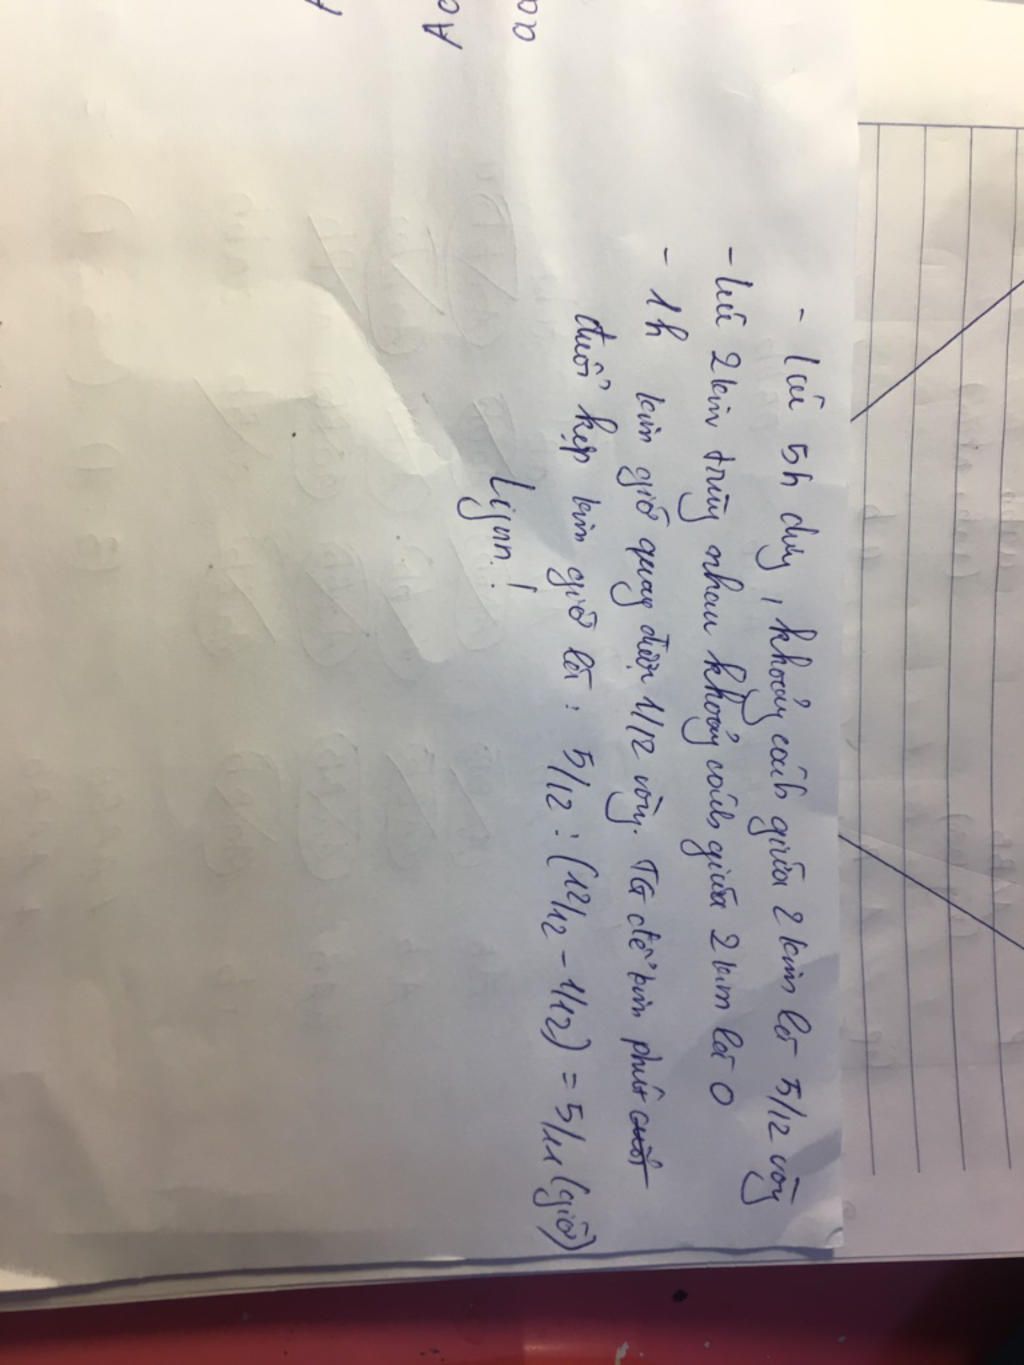 - Lúc 5h đúng, khoảng cách giữa 2 kim là 5/12 vòng
- Lúc 2 kim trùng nhau khoảng cách giữa 2 kim là 0
- 1h kim giờ quay được 1/12 vòng. Ta để kim phút
đuổi kịp kim giờ là : 5/12 : (12/12 - 1/12) = 5/11 (giờ)